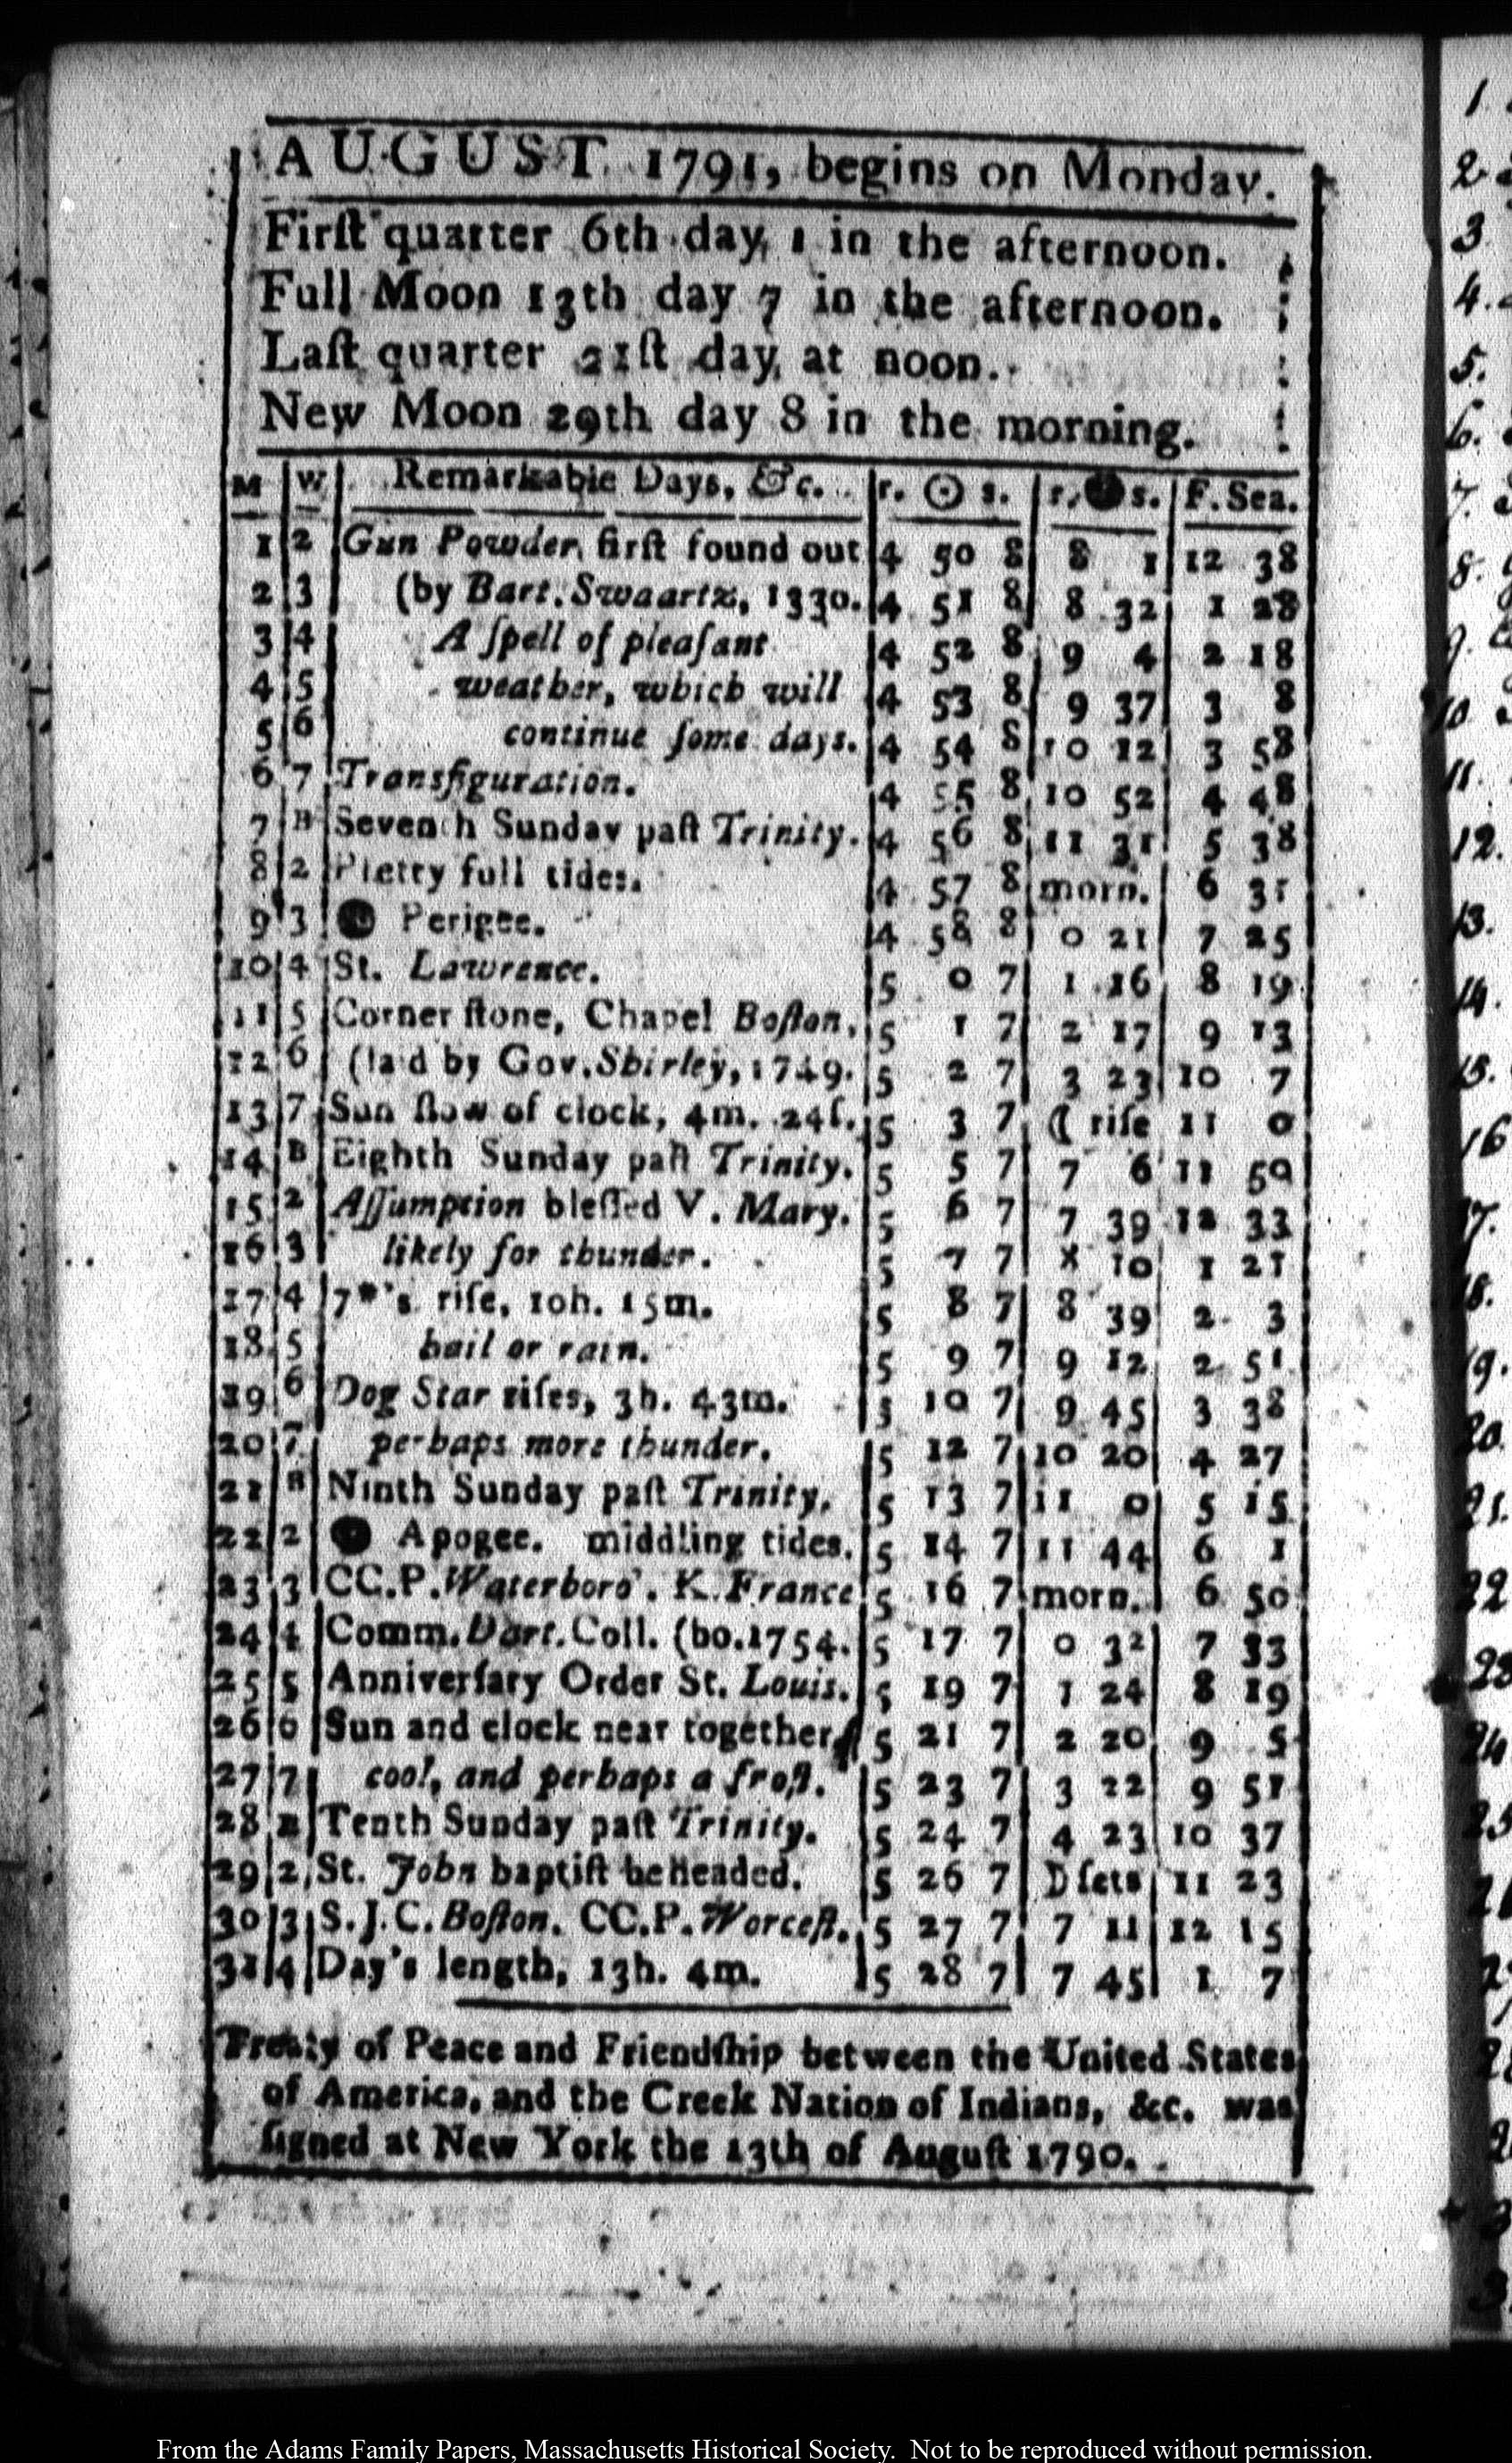 AUGUST 1791, begins on Monday.
Firſt quarter 6th day, 1 in the afternoon.
Full Moon 13th day 7 in the afternoon.
Laſt quarter 21ſt day, at noon.
New Moon 29th day 8 in the morning.
M W Remarkable Days, &c. r. ☉ s. r. s. F. Sea.
1 2 Gun Powder firſt found out 4 50 8 8 1 12 38
2 3 (by Bart. Swaartz, 1330. 4 51 8 8 32 1 28
3 4 A ſpell of pleaſant 4 52 8 9 4 2 18
4 5 weather, which will 4 53 8 9 37 3 8
5 6 continue ſome days. 4 54 8 10 12 3 58
6 7 Transfiguration. 4 55 8 10 52 4 48
7 B Seventh Sunday paſt Trinity. 4 56 8 11 31 5 38
8 2 Pretty full tides. 4 57 8 morn. 6 31
9 3 Perigee. 4 58 8 0 21 7 25
10 4 St. Lawrence. 5 0 7 1 16 8 19
11 5 Corner ſtone, Chapel Boſton, 5 1 7 2 17 9 13
12 6 (laid by Gov. Shirley, 1749. 5 2 7 3 23 10 7
13 7 Sun ſlow of clock, 4m. 24ſ. 5 3 7 ☾ riſe 11 0
14 B Eighth Sunday paſt Trinity. 5 5 7 7 6 11 50
15 2 Aſſumption bleſſed V. Mary. 5 6 7 7 39 12 33
16 3 likely for thunder. 5 7 7 8 10 1 21
17 4 7*'s riſe, 10h. 15m. 5 8 7 8 39 2 3
18 5 hail or rain. 5 9 7 9 12 2 51
19 6 Dog Star riſes, 3h. 43m. 5 10 7 9 45 3 38
20 7 perhaps more thunder. 5 12 7 10 20 4 27
21 B Ninth Sunday paſt Trinity. 5 13 7 11 0 5 15
22 2 Apogee. middling tides. 5 14 7 11 44 6 1
23 3 CC.P. Waterboro'. K. France 5 16 7 morn. 6 50
24 4 Comm. Dart. Coll. (bo. 1754. 5 17 7 0 32 7 33
25 5 Anniverſary Order St. Louis. 5 19 7 1 24 8 19
26 6 Sun and clock near together 5 21 7 2 20 9 5
27 7 cool, and perhaps a froſt. 5 23 7 3 22 9 51
28 B Tenth Sunday paſt Trinity. 5 24 7 4 23 10 37
29 2 St. John baptiſt beheaded. 5 26 7 D ſets 11 23
30 3 S. J. C. Boſton. CC.P. Worceſt. 5 27 7 7 11 12 15
31 4 Day's length, 13h. 4m. 5 28 7 7 45 1 7
Treaty of Peace and Friendſhip between the United States
of America, and the Creek Nation of Indians, &c. was
ſigned at New York the 13th of Auguſt 1790.
1
2
3
4.
5.
6.
7.
8.
9.
10
11.
12.
13.
14.
15.
16
17.
18.
19.
20.
21.
22
From the Adams Family Papers, Massachusetts Historical Society. Not to be reproduced without permission.